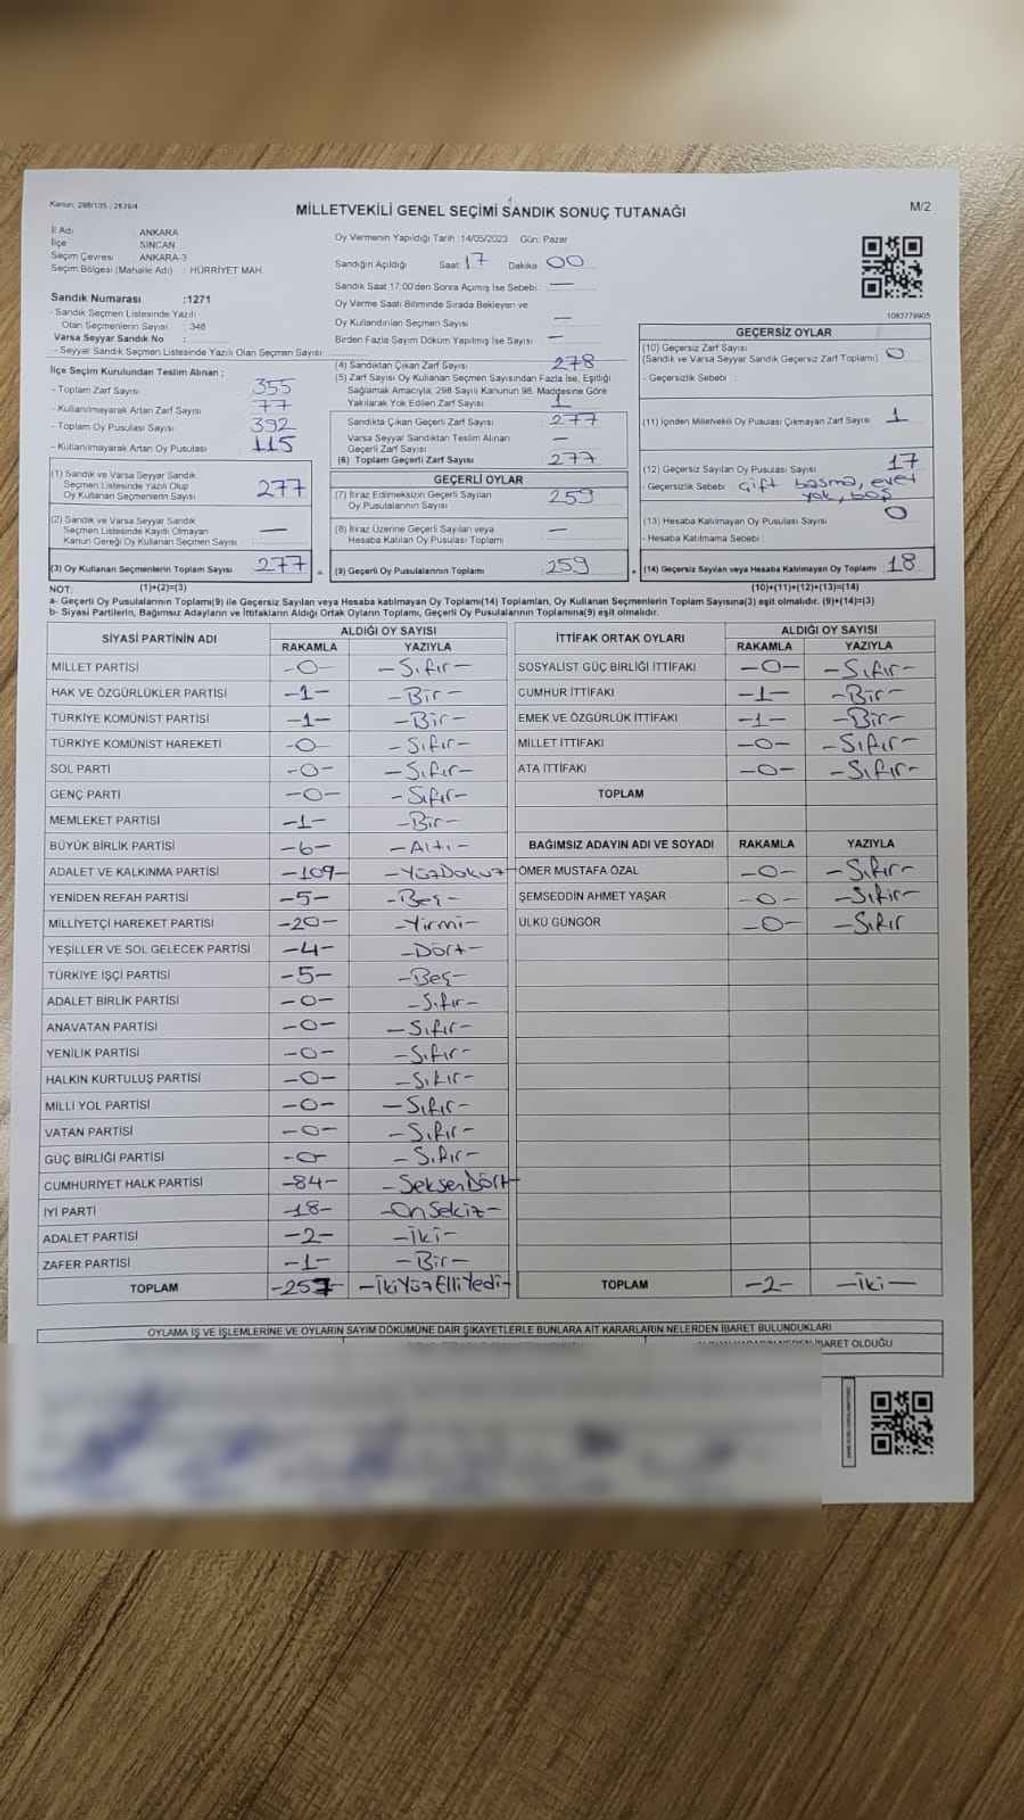 Kanun: 298/105 ; 2839/4
MİLLETVEKİLİ GENEL SEÇİMİ SANDIK SONUÇ TUTANAĞI
M/2
İl Adı ANKARA
İlçe SİNCAN
Seçim Çevresi ANKARA-3
Seçim Bölgesi (Mahalle Adı) : HÜRRİYET MAH.
Oy Vermenin Yapıldığı Tarih :14/05/2023 Gün: Pazar
Sandığın Açıldığı Saat: 17 Dakika 00
Sandık Saat 17:00'den Sonra Açılmış İse Sebebi: —
Oy Verme Saati Bitiminde Sırada Bekleyen ve
Oy Kullandırılan Seçmen Sayısı —
Birden Fazla Sayım Döküm Yapılmış İse Sayısı —
Sandık Numarası :1271
- Sandık Seçmen Listesinde Yazılı
Olan Seçmenlerin Sayısı : 348
Varsa Seyyar Sandık No :
- Seyyar Sandık Seçmen Listesinde Yazılı Olan Seçmen Sayısı :
İlçe Seçim Kurulundan Teslim Alınan ;
- Toplam Zarf Sayısı 355
- Kullanılmayarak Artan Zarf Sayısı 77
- Toplam Oy Pusulası Sayısı 392
- Kullanılmayarak Artan Oy Pusulası 115
(1) Sandık ve Varsa Seyyar Sandık
Seçmen Listesinde Yazılı Olup
Oy Kullanan Seçmenlerin Sayısı 277
(2) Sandık ve Varsa Seyyar Sandık
Seçmen Listesinde Kayıtlı Olmayan
Kanun Gereği Oy Kullanan Seçmen Sayısı —
(3) Oy Kullanan Seçmenlerin Toplam Sayısı 277
(1)+(2)=(3)
(4) Sandıktan Çıkan Zarf Sayısı 278
(5) Zarf Sayısı Oy Kullanan Seçmen Sayısından Fazla İse, Eşitliği
Sağlamak Amacıyla; 298 Sayılı Kanunun 98. Maddesine Göre
Yakılarak Yok Edilen Zarf Sayısı 1
Sandıkta Çıkan Geçerli Zarf Sayısı 277
Varsa Seyyar Sandıktan Teslim Alınan
Geçerli Zarf Sayısı —
(6) Toplam Geçerli Zarf Sayısı 277
GEÇERLİ OYLAR
(7) İtiraz Edilmeksizin Geçerli Sayılan
Oy Pusulalarının Sayısı 259
(8) İtiraz Üzerine Geçerli Sayılan veya
Hesaba Katılan Oy Pusulası Toplamı —
(9) Geçerli Oy Pusulalarının Toplamı 259
1083779905
GEÇERSİZ OYLAR
(10) Geçersiz Zarf Sayısı
(Sandık ve Varsa Seyyar Sandık Geçersiz Zarf Toplamı) 0
- Geçersizlik Sebebi :
(11) İçinden Milletvekili Oy Pusulası Çıkmayan Zarf Sayısı 1
(12) Geçersiz Sayılan Oy Pusulası Sayısı 17
- Geçersizlik Sebebi: Çift basma, evet
yok, boş
(13) Hesaba Katılmayan Oy Pusulası Sayısı 0
- Hesaba Katılmama Sebebi :
(14) Geçersiz Sayılan veya Hesaba Katılmayan Oy Toplamı 18
(10)+(11)+(12)+(13)=(14)
NOT:
a- Geçerli Oy Pusulalarının Toplamı(9) ile Geçersiz Sayılan veya Hesaba katılmayan Oy Toplamı(14) Toplamları, Oy Kullanan Seçmenlerin Toplam Sayısına(3) eşit olmalıdır. (9)+(14)=(3)
b- Siyasi Partilerin, Bağımsız Adayların ve İttifakların Aldığı Ortak Oyların Toplamı, Geçerli Oy Pusulalarının Toplamına(9) eşit olmalıdır.
SİYASİ PARTİNİN ADI ALDIĞI OY SAYISI
RAKAMLA YAZIYLA
MİLLET PARTİSİ -0- -Sıfır-
HAK VE ÖZGÜRLÜKLER PARTİSİ -1- -Bir-
TÜRKİYE KOMÜNİST PARTİSİ -1- -Bir-
TÜRKİYE KOMÜNİST HAREKETİ -0- -Sıfır-
SOL PARTİ -0- -Sıfır-
GENÇ PARTİ -0- -Sıfır-
MEMLEKET PARTİSİ -1- -Bir-
BÜYÜK BİRLİK PARTİSİ -6- -Altı-
ADALET VE KALKINMA PARTİSİ -109- -YüzDokuz-
YENİDEN REFAH PARTİSİ -5- -Beş-
MİLLİYETÇİ HAREKET PARTİSİ -20- -Yirmi-
YEŞİLLER VE SOL GELECEK PARTİSİ -4- -Dört-
TÜRKİYE İŞÇİ PARTİSİ -5- -Beş-
ADALET BİRLİK PARTİSİ -0- -Sıfır-
ANAVATAN PARTİSİ -0- -Sıfır-
YENİLİK PARTİSİ -0- -Sıfır-
HALKIN KURTULUŞ PARTİSİ -0- -Sıfır-
MİLLİ YOL PARTİSİ -0- -Sıfır-
VATAN PARTİSİ -0- -Sıfır-
GÜÇ BİRLİĞİ PARTİSİ -0- -Sıfır-
CUMHURİYET HALK PARTİSİ -84- -SeksenDört-
İYİ PARTİ -18- -OnSekiz-
ADALET PARTİSİ -2- -İki-
ZAFER PARTİSİ -1- -Bir-
TOPLAM -257- -İkiYüzElliYedi-
İTTİFAK ORTAK OYLARI ALDIĞI OY SAYISI
RAKAMLA YAZIYLA
SOSYALİST GÜÇ BİRLİĞİ İTTİFAKI -0- -Sıfır-
CUMHUR İTTİFAKI -1- -Bir-
EMEK VE ÖZGÜRLÜK İTTİFAKI -1- -Bir-
MİLLET İTTİFAKI -0- -Sıfır-
ATA İTTİFAKI -0- -Sıfır-
TOPLAM
BAĞIMSIZ ADAYIN ADI VE SOYADI RAKAMLA YAZIYLA
ÖMER MUSTAFA ÖZAL -0- -Sıfır-
ŞEMSEDDİN AHMET YAŞAR -0- -Sıfır-
ÜLKÜ GÜNGÖR -0- -Sıfır
TOPLAM -2- -İki-
OYLAMA İŞ VE İŞLEMLERİNE VE OYLARIN SAYIM DÖKÜMÜNE DAİR ŞİKAYETLERLE BUNLARA AİT KARARLARIN NELERDEN İBARET BULUNDUKLARI
İBARET OLDUĞU